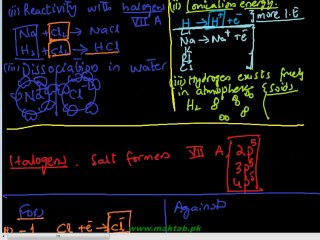 (ii) Reactivity with halogens
VII A
Na + Cl₂ → NaCl
H₂ + Cl₂ → HCl
(iii) Dissociation in water
Na Cl
(ii) Ionization energy:
H → H⁺ + ē } more I.E
Li
Na → Na⁺ + ē
K
(iii) Hydrogen exists freely
in atmosphere
H₂
Halogens. Salt formers VII A
2p⁵
3p⁵
4p⁵
For:
(i) -1 Cl + ē → Cl⁻
Against
www.maktab.pk